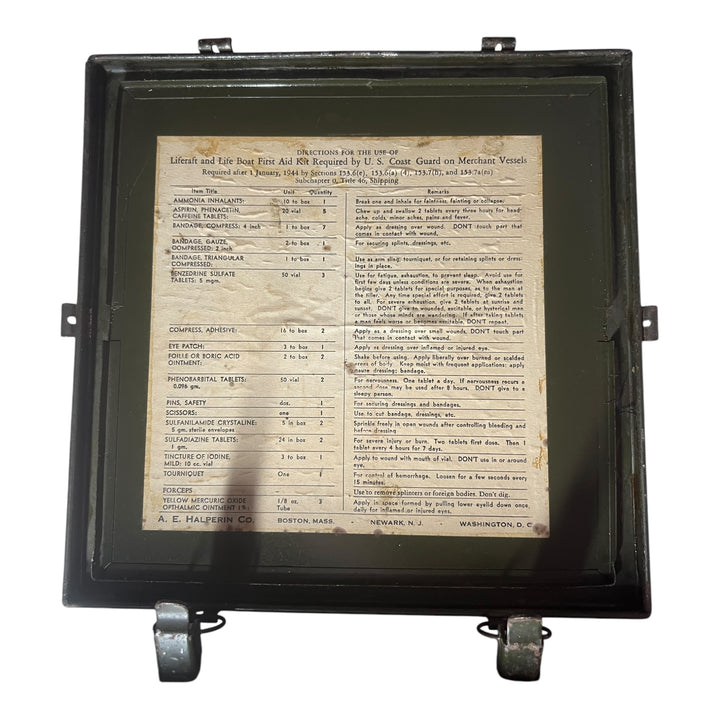 DIRECTIONS FOR THE USE OF
Liferaft and Life Boat First Aid Kit Required by U. S. Coast Guard on Merchant Vessels
Required after 1 January, 1944 by Sections 153.6(e), 153.6(a) (4), 153.7(h), and 153.7a(m)
Subchapter O, Title 46, Shipping
Item Title Unit Quantity Remarks
AMMONIA INHALANTS: 10 to box 1 Break one and inhale for faintness, fainting or collapse.
ASPIRIN, PHENACETIN, 20 vial 5 Chew up and swallow 2 tablets every three hours for head-
CAFFEINE TABLETS: ache, colds, minor aches, pains and fever.
BANDAGE, COMPRESS: 4 inch 1 to box 7 Apply as dressing over wound. DON'T touch part
that comes in contact with wound.
BANDAGE, GAUZE, 2 to box 1 For securing splints, dressings, etc.
COMPRESSED: 2 inch
BANDAGE, TRIANGULAR 1 to box 1 Use as arm sling, tourniquet, or for retaining splints or dress-
COMPRESSED: ings in place.
BENZEDRINE SULFATE 50 vial 3 Use for fatigue, exhaustion, to prevent sleep. Avoid use for
TABLETS: 5 mgm. first few days unless conditions are severe. When exhaustion
begins give 2 tablets for special purposes, as to the man at
the tiller. Any time special effort is required, give 2 tablets
to all. For severe exhaustion, give 2 tablets at sunrise and
sunset. DON'T give to wounded, excitable, or hysterical men
or those whose minds are wandering. If after taking tablets
a man feels worse or becomes excitable, DON'T repeat.
COMPRESS, ADHESIVE: 16 to box 2 Apply as a dressing over small wounds. DON'T touch part
that comes in contact with wound.
EYE PATCH: 3 to box 1 Apply as dressing over inflamed or injured eye.
FOILLE OR BORIC ACID 2 to box 2 Shake before using. Apply liberally over burned or scalded
OINTMENT: areas of body. Keep moist with frequent applications; apply
gauze dressing; bandage.
PHENOBARBITAL TABLETS: 50 vial 2 For nervousness. One tablet a day. If nervousness recurs a
0.096 gm. second dose may be used after 8 hours. DON'T give to a
sleepy person.
PINS, SAFETY doz. 1 For securing dressings and bandages.
SCISSORS: one 1 Use to cut bandage, dressings, etc.
SULFANILAMIDE CRYSTALINE: 5 in box 2 Sprinkle freely in open wounds after controlling bleeding and
5 gm. sterile envelopes before dressing
SULFADIAZINE TABLETS: 24 in box 2 For severe injury or burn. Two tablets first dose. Then 1
1 gm. tablet every 4 hours for 7 days.
TINCTURE OF IODINE, 3 to box 1 Apply to wound with mouth of vial. DON'T use in or around
MILD: 10 cc. vial eye.
TOURNIQUET One 1 For control of hemorrhage. Loosen for a few seconds every
15 minutes.
FORCEPS Use to remove splinters or foreign bodies. Don't dig.
YELLOW MERCURIC OXIDE 1/8 oz. 3 Apply in space formed by pulling lower eyelid down once
OPTHALMIC OINTMENT 1%: Tube daily for inflamed or injured eyes.
A. E. HALPERIN CO. BOSTON, MASS. - NEWARK, N. J. WASHINGTON, D. C.